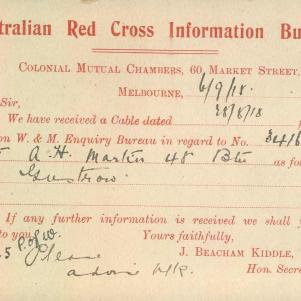 stralian Red Cross Information Bu
COLONIAL MUTUAL CHAMBERS, 60, MARKET STREET,
MELBOURNE, 6/9/18.
Sir,
We have received a Cable dated 28/8/18
on W. & M. Enquiry Bureau in regard to No. 3416
A. H. 48 Btn as fo
Gustrow.
If any further information is received we shall
to you. Yours faithfully,
5 P. of W.
J. BEACHAM KIDDLE,
Please
Hon. Secre